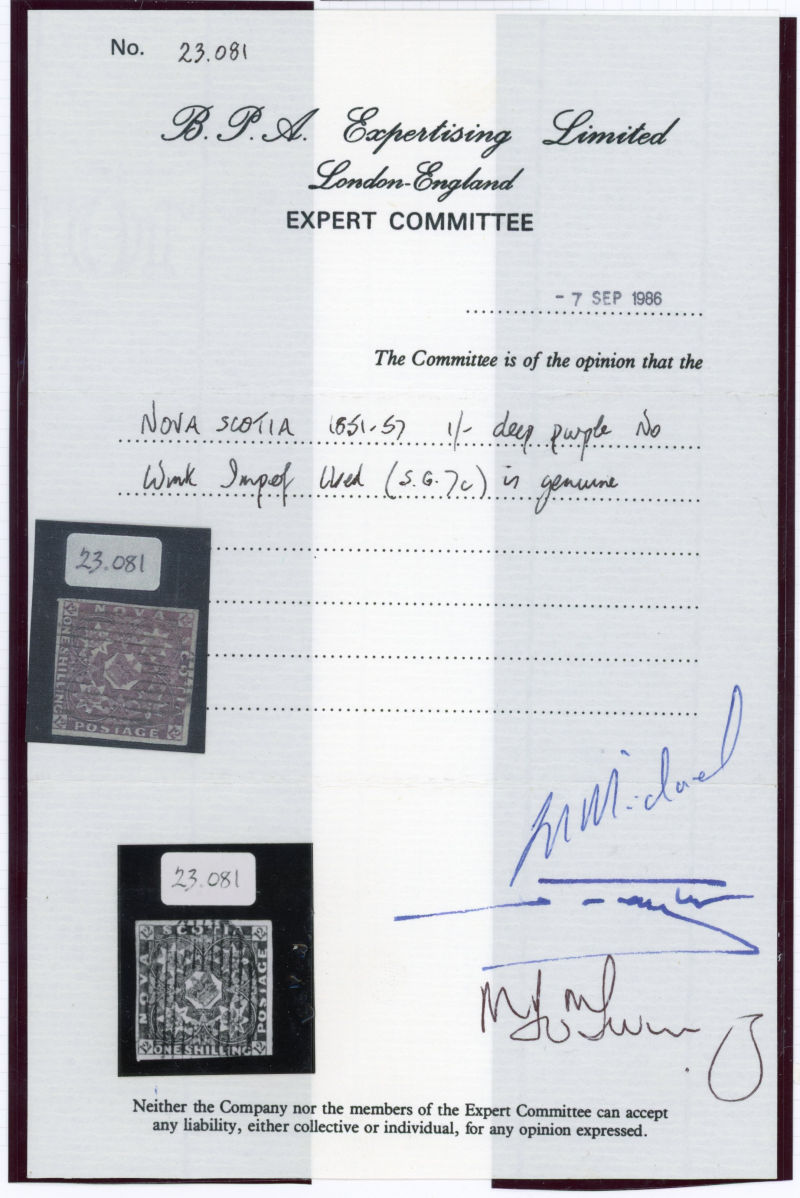 No. 23.081
B.P.A. Expertising Limited
London-England
EXPERT COMMITTEE
- 7 SEP 1986
The Committee is of the opinion that the
NOVA SCOTIA 1851-57 1/- deep purple No
Wmk Imperf Used (S.G.7c) is genuine
23.081
NOVA
SCOTIA
ONE SHILLING
POSTAGE
23.081
SCOTIA
NOVA
POSTAGE
ONE SHILLING
Neither the Company nor the members of the Expert Committee can accept
any liability, either collective or individual, for any opinion expressed.